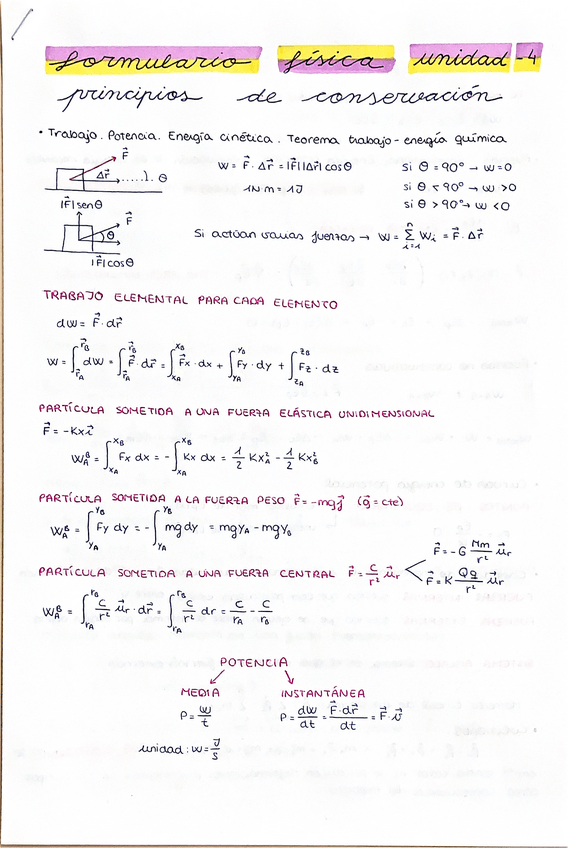 formulario física unidad-4
principios de conservación
• Trabajo. Potencia. Energía cinética. Teorema trabajo-energía química
F⃗
Δr⃗ ......). θ
W = F⃗ · Δr⃗ = |F⃗||Δr⃗| cosθ
Si θ = 90° → W=0
1N m = 1J
Si θ < 90° → W >0
Si θ > 90° → W <0
|F⃗|senθ
F⃗
θ
|F⃗|cosθ
Si actúan varias fuerzas → W = Σ(i=1, n) Wi = F⃗ · Δr⃗
TRABAJO ELEMENTAL PARA CADA ELEMENTO
dW = F⃗ · dr⃗
W = ∫(r⃗A, r⃗B) dW = ∫(r⃗A, r⃗B) F⃗ · dr⃗ = ∫(xA, xB) Fx · dx + ∫(yA, yB) Fy · dy + ∫(zA, zB) Fz · dz
PARTÍCULA SOMETIDA A UNA FUERZA ELÁSTICA UNIDIMENSIONAL
F⃗ = -Kxi⃗
W_A^B = ∫(xA, xB) Fx dx = - ∫(xA, xB) Kx dx = 1/2 Kx²A - 1/2 Kx²B
PARTÍCULA SOMETIDA A LA FUERZA PESO F⃗ = -mgj⃗ (g⃗ = cte)
W_A^B = ∫(yA, yB) Fy dy = - ∫(yA, yB) mg dy = mgyA - mgyB
PARTÍCULA SOMETIDA A UNA FUERZA CENTRAL F⃗ = C/r² u⃗r
F⃗ = -G Mm/r² u⃗r
F⃗ = K Qq/r² u⃗r
W_A^B = ∫(rA, rB) C/r² u⃗r · dr⃗ = ∫(rA, rB) C/r² dr = C/rA - C/rB
POTENCIA
MEDIA INSTANTÁNEA
P = W/t P = dW/dt = F⃗ · dr⃗/dt = F⃗ · v⃗
unidad: W = J/s